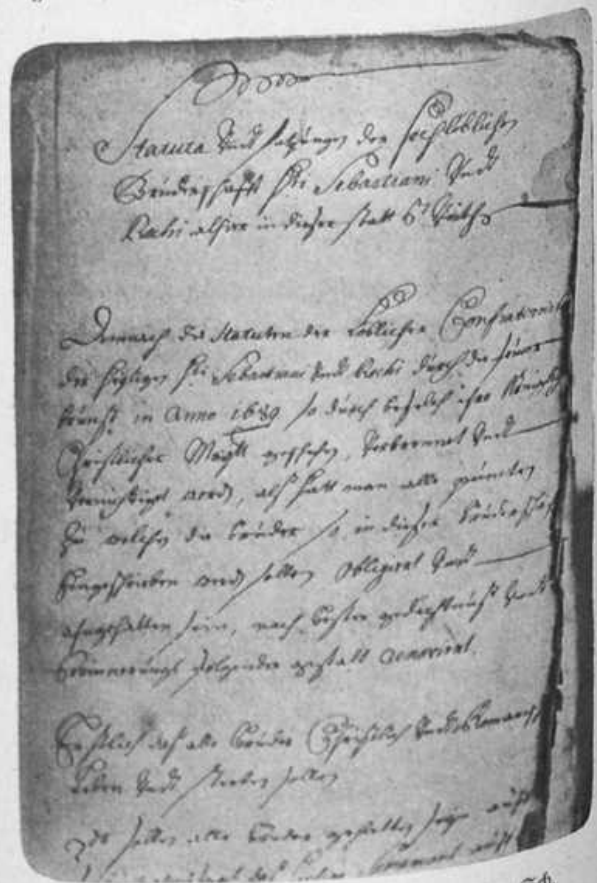 Statuta Undt satzungen der hochlöblichen
Bruderschafft Sti Sebastiani Undt
Rochi alhier in dieser statt St Vith
Demnach die statuten der Löblichen Confraternitet
der heyligen Sti Sebastiani Undt Rochi durch die feuwrs
brunst in Anno 1689 so durch befelch ihro Königl
Christlicher Maytt geschehen, Verbrennet Undt
Vernichtiget worden, alß hatt man alle puncten
Zu welchen die brüder so in dieser bruderschafft
Eingeschrieben werden sollen Obligiret Undt
angehalten sein, nach bester gedächtnuß Undt
Erinnerung folgender gestalt renovirt.
Erstlich daß alle brüder Christlich Undt
Leben Undt sterben sollen
2do sollen alle brüder gehalten sein auff